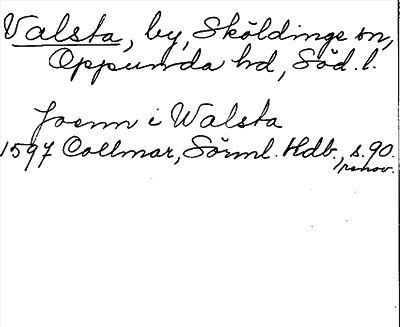 Valsta, by, Sköldinge sn,
Oppunda hd, Söd. l.
Joenn i Walsta
1597 Collmar, Sörml. Hdb., s. 90.